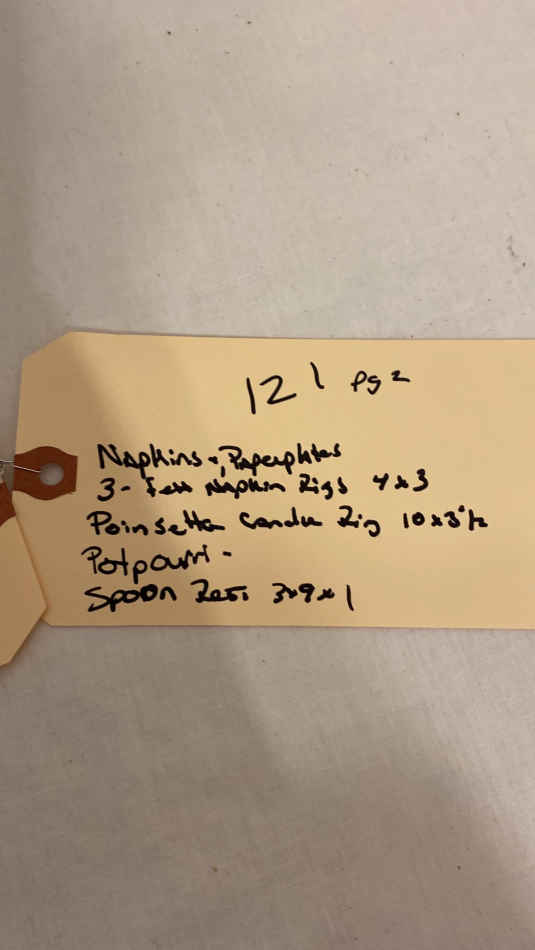 121 pg 2
Napkins + Paperplates
3- Napkin Rigs 4x3
Poinsetta Candle Rig 10x3½
Potpourri -
Spoon Rest 3x9x1